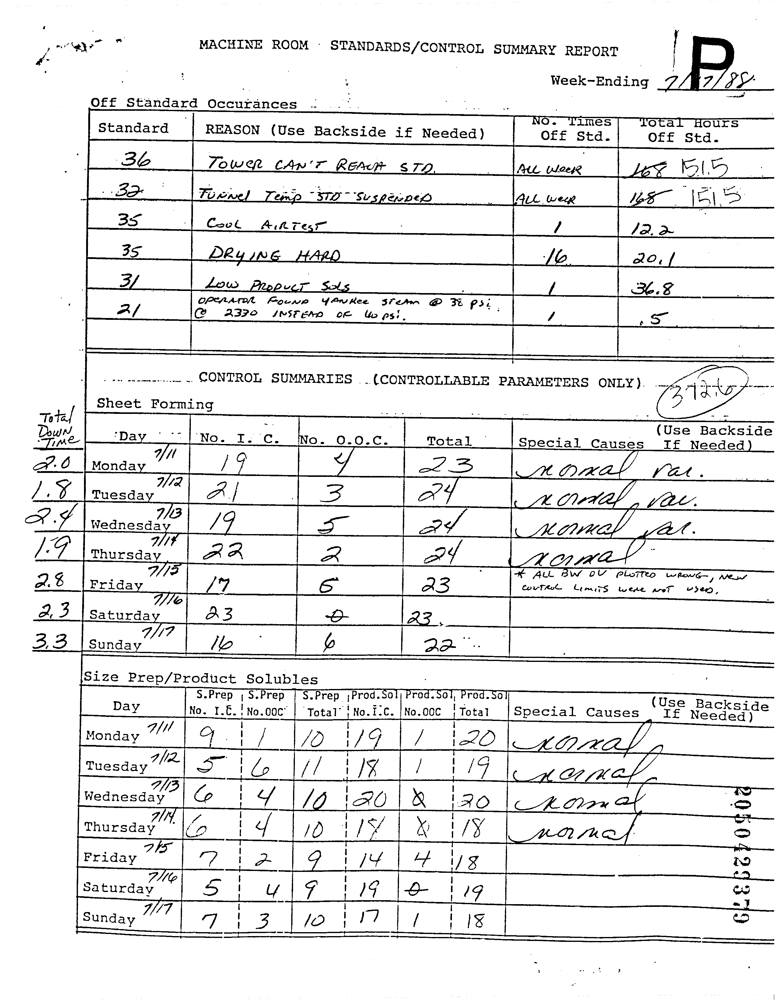 MACHINE ROOM · STANDARDS/CONTROL SUMMARY REPORT
P
Week-Ending 7/17/88
Off Standard Occurances
Standard REASON (Use Backside if Needed) No. Times Off Std. Total Hours Off Std.
36 TOWER CAN'T REACH STD. ALL WEEK 168 151.5
32 FUNNEL TEMP STD SUSPENDED ALL WEEK 168 151.5
35 COOL AIR TEST 1 12.2
35 DRYING HARD 16 20.1
31 LOW PRODUCT SOLS 1 36.8
21 OPERATOR FOUND YANKEE STEAM @ 38 PSI. @ 2330 INSTEAD OF 40 PSI. 1 .5
CONTROL SUMMARIES (CONTROLLABLE PARAMETERS ONLY) 372.6
Sheet Forming
Total Down Time Day No. I. C. No. O.O.C. Total Special Causes (Use Backside If Needed)
2.0 Monday 7/11 19 4 23 normal var.
1.8 Tuesday 7/12 21 3 24 normal var.
2.4 Wednesday 7/13 19 5 24 normal var.
1.9 Thursday 7/14 22 2 24 normal
2.8 Friday 7/15 17 6 23 * ALL BW OV PLOTTED WRONG, NEW CONTROL LIMITS WERE NOT USED.
2.3 Saturday 7/16 23 0 23.
3.3 Sunday 7/17 16 6 22
Size Prep/Product Solubles
Day S.Prep No. I.C. S.Prep No.OOC S.Prep Total Prod.Sol No.I.C. Prod.Sol No.OOC Prod.Sol Total Special Causes (Use Backside If Needed)
Monday 7/11 9 1 10 19 1 20 normal
Tuesday 7/12 5 6 11 18 1 19 normal
Wednesday 7/13 6 4 10 20 0 20 normal
Thursday 7/14 6 4 10 18 0 18 normal
Friday 7/15 7 2 9 14 4 18
Saturday 7/16 5 4 9 19 0 19
Sunday 7/17 7 3 10 17 1 18
2050429379